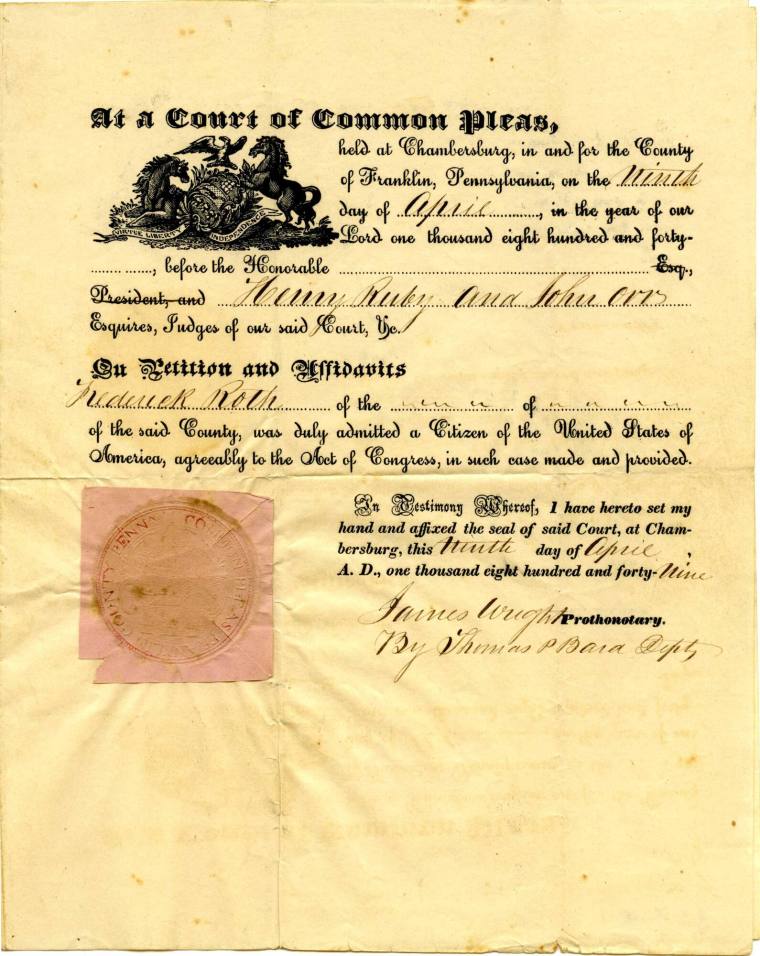 At a Court of Common Pleas,
held at Chambersburg, in and for the County
of Franklin, Pennsylvania, on the Ninth
day of April, in the year of our
Lord one thousand eight hundred and forty-
VIRTUE LIBERTY INDEPENDENCE
, before the Honorable Esq.,
President, and Henry Ruby and John Orr
Esquires, Judges of our said Court, &c.
On Petition and Affidavits
Frederick Roth of the " " " of " " " "
of the said County, was duly admitted a Citizen of the United States of
America, agreeably to the Act of Congress, in such case made and provided.
In Testimony Whereof, I have hereto set my
hand and affixed the seal of said Court, at Cham-
bersburg, this Ninth day of April,
A. D., one thousand eight hundred and forty-Nine
James Wright Prothonotary.
By Thomas P Bard Depty
COUNTY PENNA